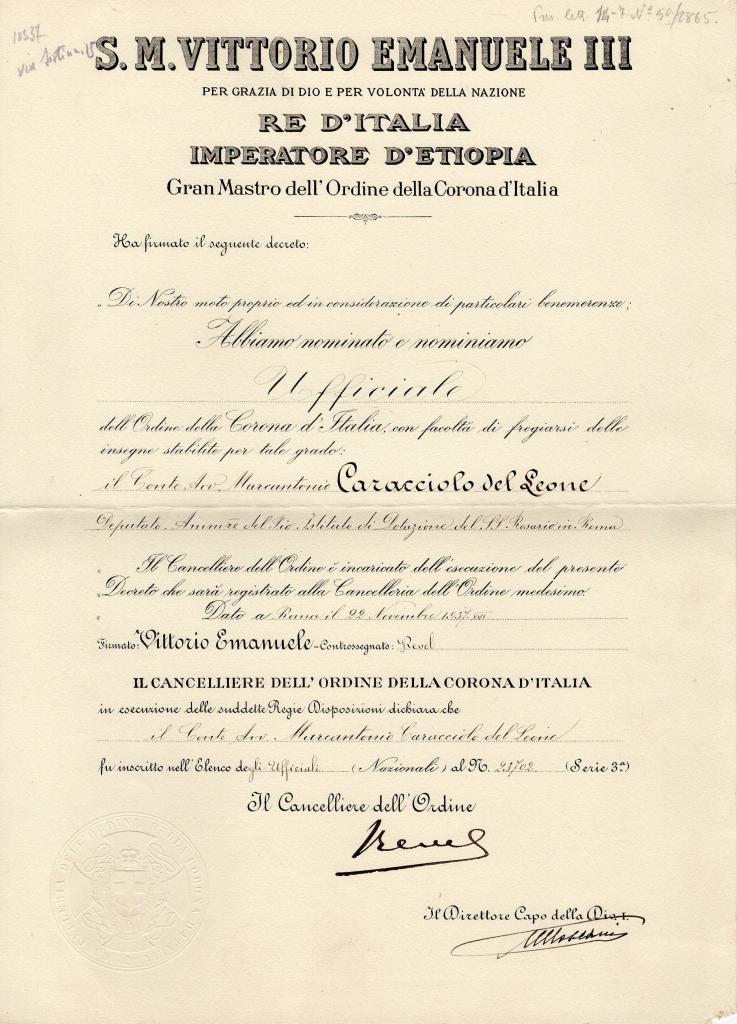 10537
S. M. VITTORIO EMANUELE III
PER GRAZIA DI DIO E PER VOLONTA' DELLA NAZIONE
RE D'ITALIA
IMPERATORE D'ETIOPIA
Gran Mastro dell'Ordine della Corona d'Italia
Ha firmato il seguente decreto:
„ Di Nostro moto proprio ed in considerazione di particolari benemerenze;
Abbiamo nominato e nominiamo
Ufficiale
dell'Ordine della Corona d'Italia, con facoltà di fregiarsi delle
insegne stabilite per tale grado:
il Conte Avv. Marcantonio Caracciolo del Leone
Deputato Ammre del Pio Istituto di Dotazione del SS. Rosario in Roma
„ Il Cancelliere dell'Ordine è incaricato dell'esecuzione del presente
„ Decreto che sarà registrato alla Cancelleria dell'Ordine medesimo.
„ Dato a Roma il 22 Novembre 1937. XVI
Firmato: Vittorio Emanuele - Controssegnato: Revel
IL CANCELLIERE DELL'ORDINE DELLA CORONA D'ITALIA
in esecuzione delle suddette Regie Disposizioni dichiara che
il Conte Avv. Marcantonio Caracciolo del Leone
fu inscritto nell'Elenco degli Ufficiali (Nazionali) al N. 23702. (Serie 3ª)
Il Cancelliere dell'Ordine
Revel
Il Direttore Capo della Div.